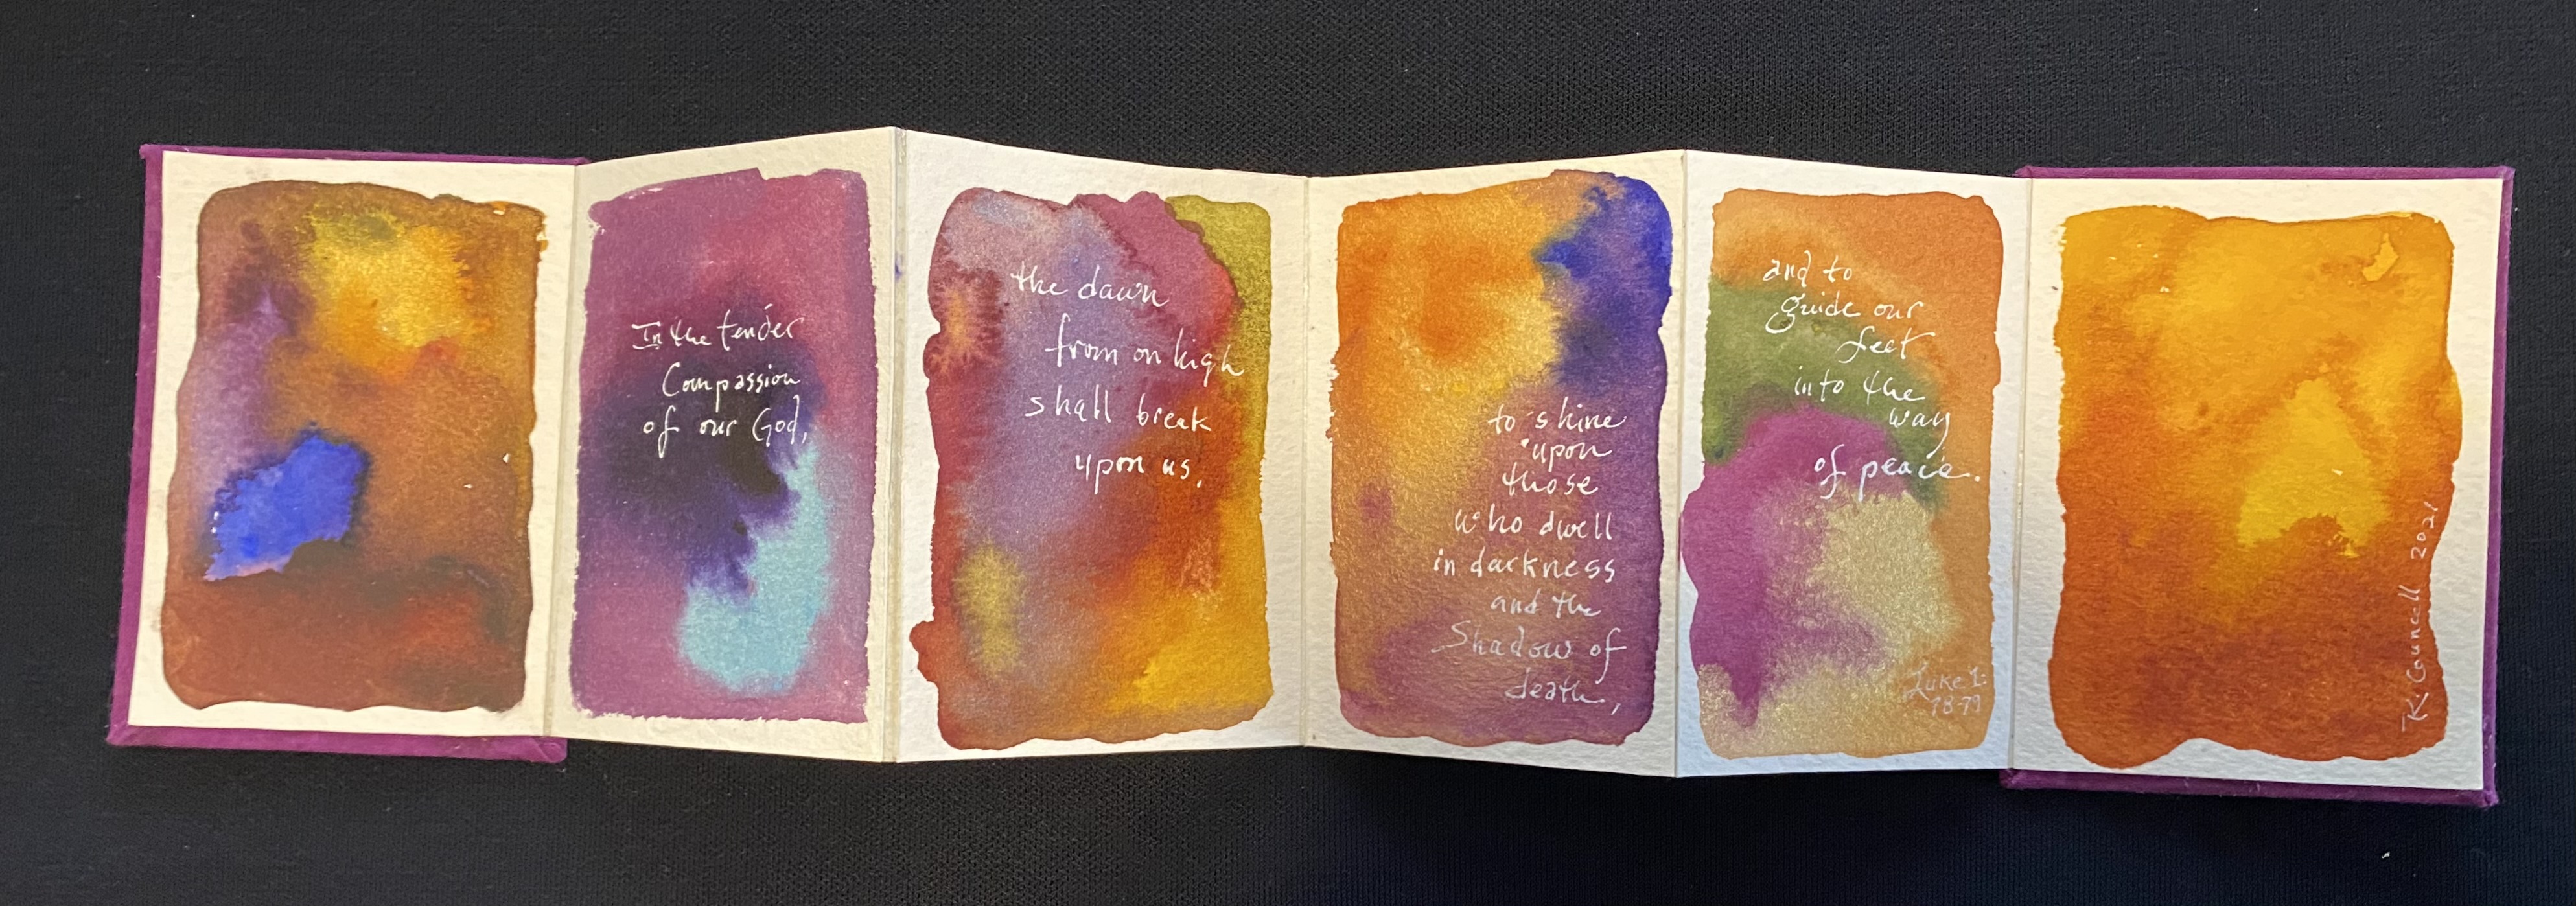 In the tender
Compassion
of our God,
the dawn
from on high
shall break
upon us,
to shine
upon
those
who dwell
in darkness
and the
Shadow of
death,
and to
guide our
feet
into the
way
of peace.
Luke 1:
78-79
K. Councell 2021